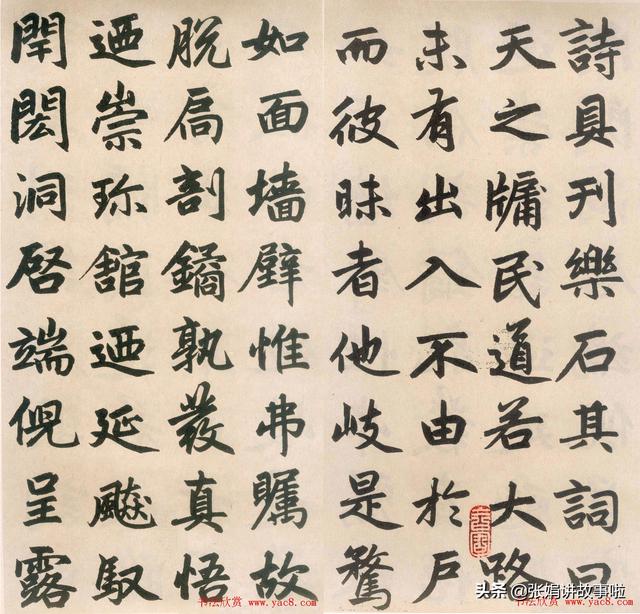 詩具刊樂石其詞曰
天之牖民道若大路
未有出入不由於戶
而彼昧者他岐是騖
如面墻壁惟弗矚故
脫扃剖鐍孰發真悟
迺崇珎館迺延飈馭
閈閎洞啓端倪呈露
书法欣赏 www.yac8.com
书法欣赏 www.yac8.com
头条 @张娟讲故事啦